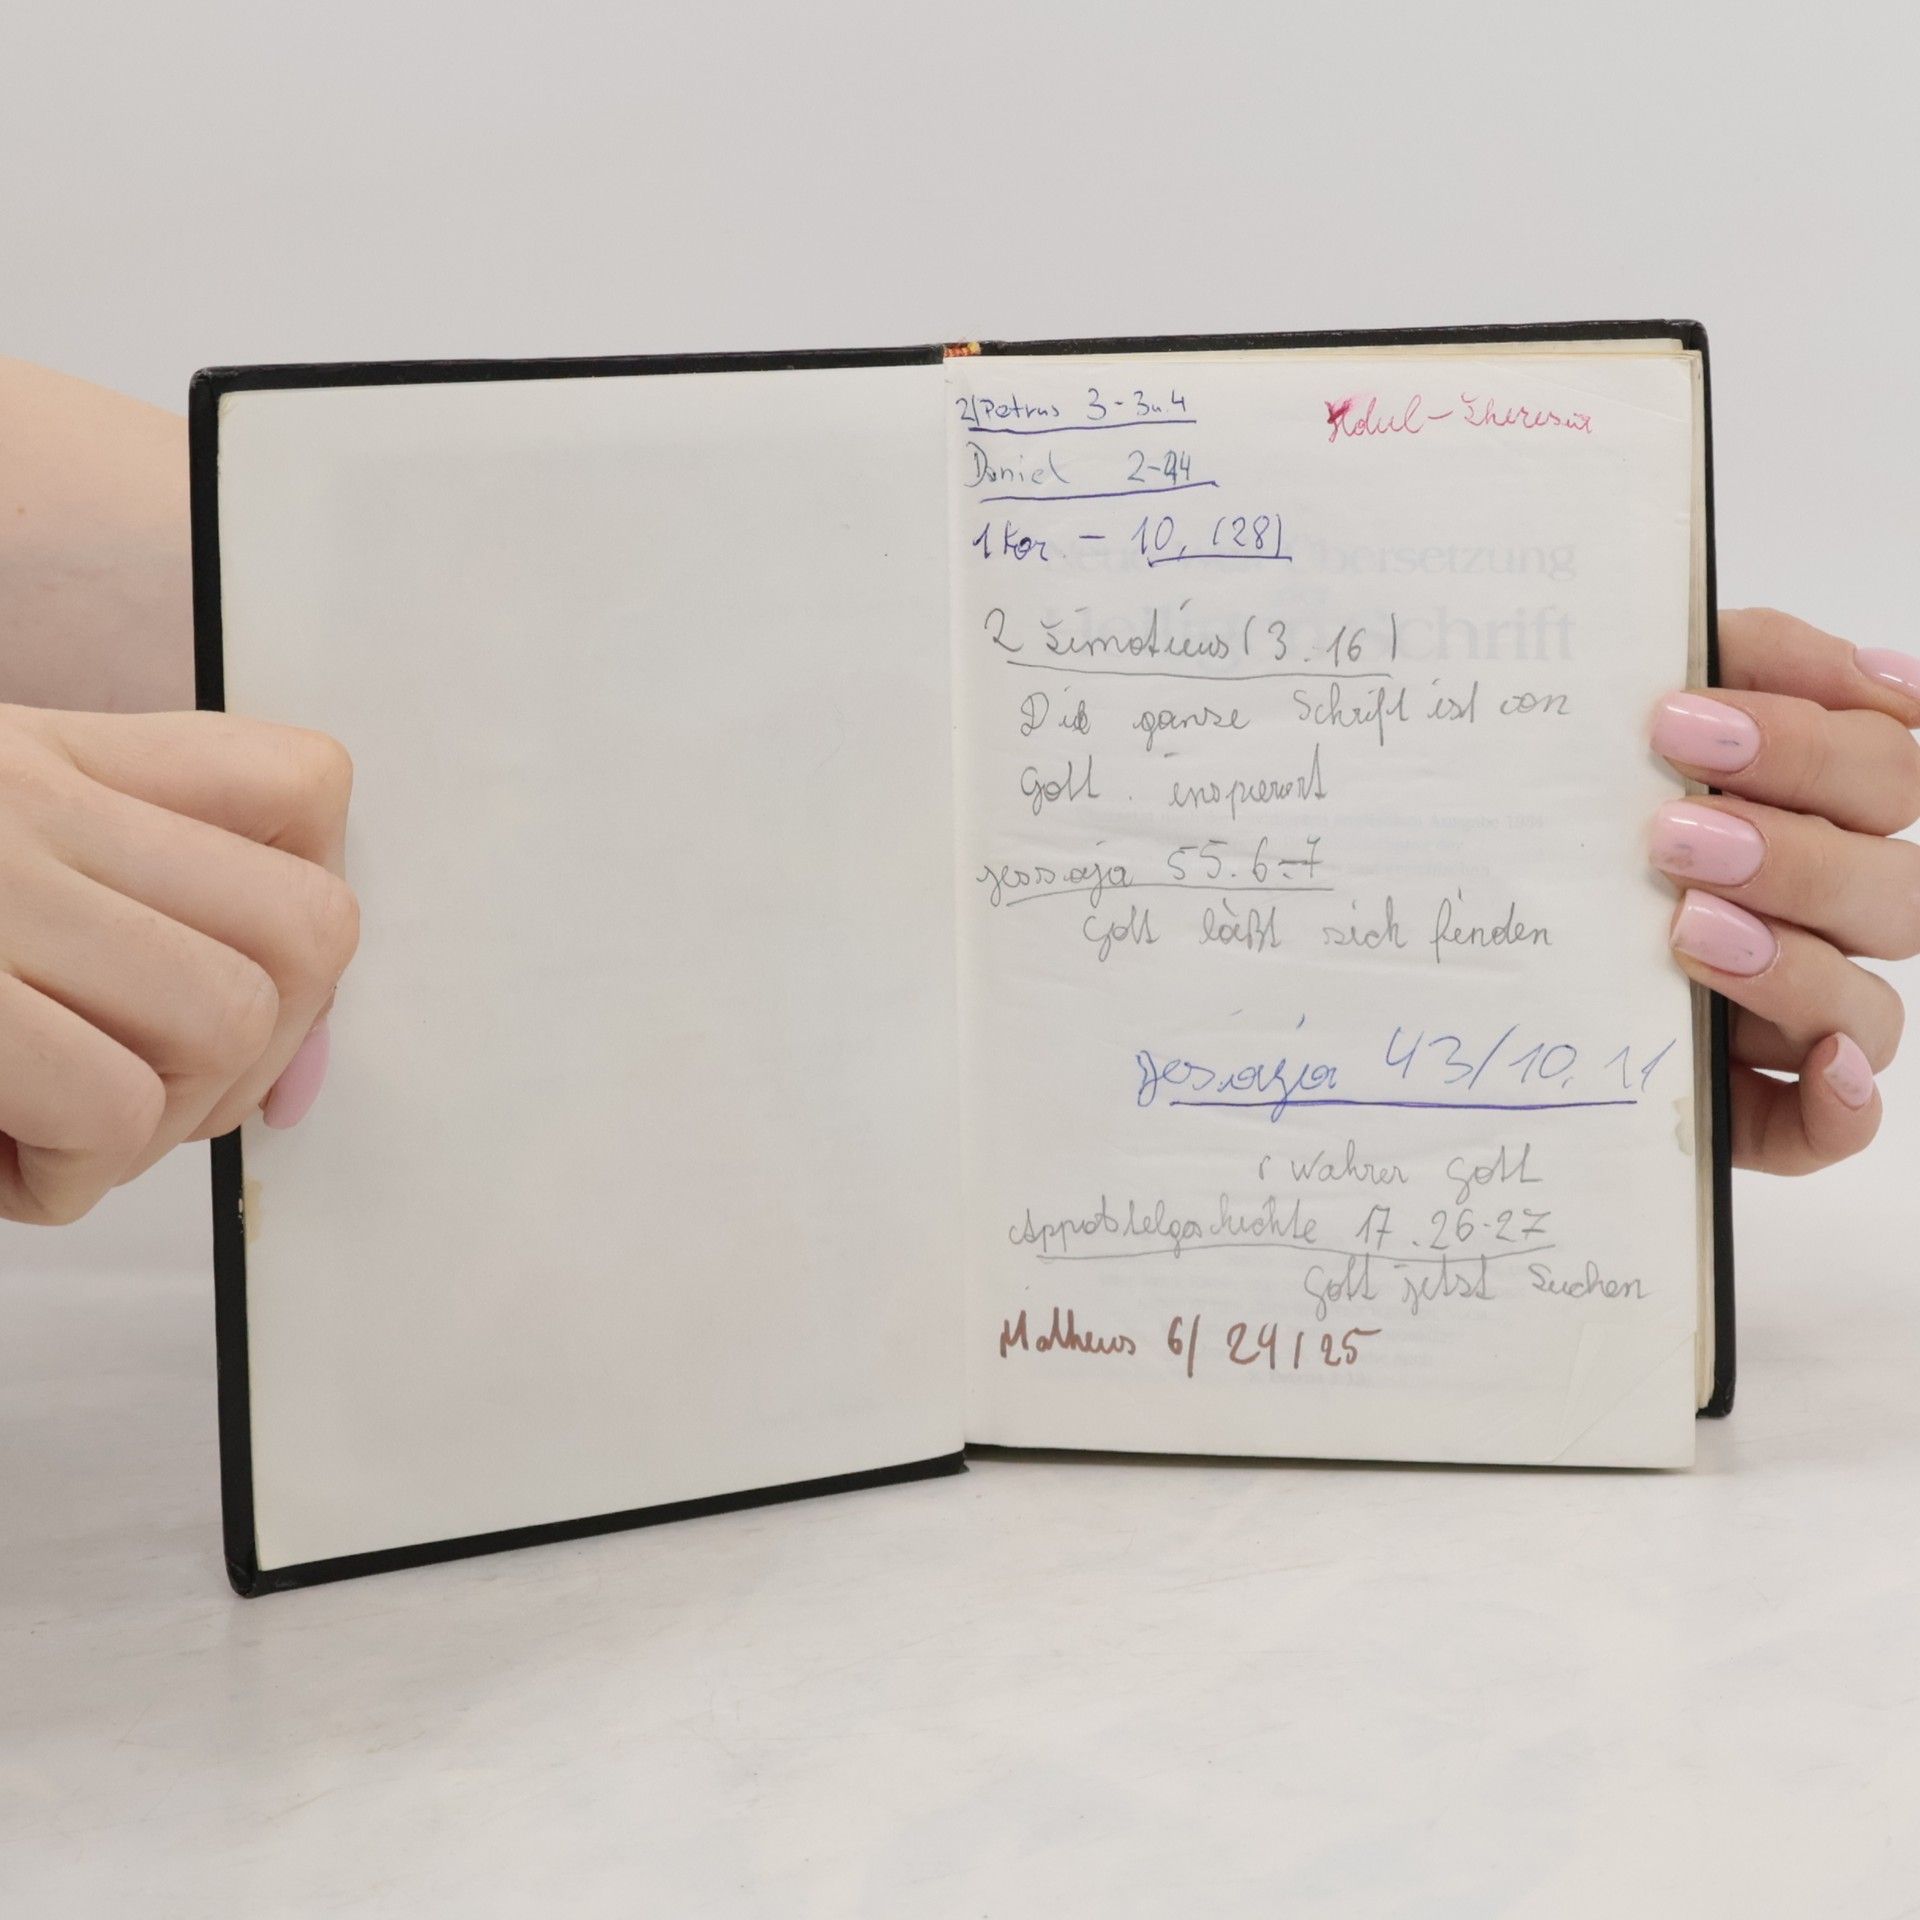 2/Petrus 3-3u.4
Daniel 2-44
1 Kor. - 10, (28)
2 Timoteus (3.16)
Die ganze Schrift ist von
Gott. inspiriert
Jessaja 55.6-7
Gott läßt sich finden
Jesaja 43/10.11
wahrer Gott
17.26-27
Gott jetzt Suchen
Matheus 6/24/25
Übersetzung
Schrift